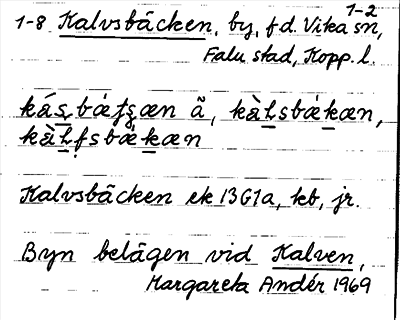 1-2
1-8 Kalvsbäcken, by, f d. Vika sn,
Falu stad, Kopp. l.
kás̲bǽʄʂæn ã, kàl̲sbǽk̲æn,
kàl̲fsbǽk̲æn
Kalvsbäcken ek 13G1a, kb, jr.
Byn belägen vid Kalven,
Margareta Andér 1969